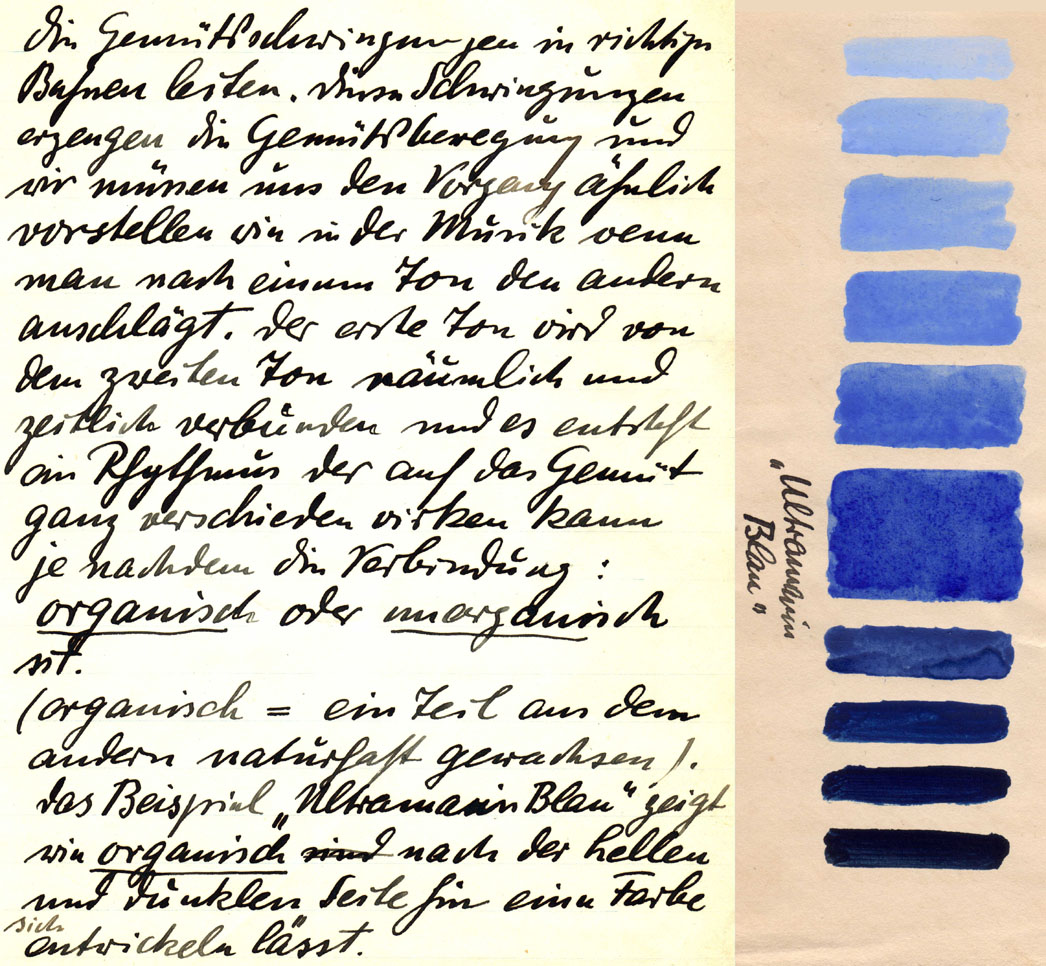 die Gemütsschwingungen in richtige
Bahnen leiten. Diese Schwingungen
erzeugen die Gemütsbewegung und
wir müssen uns den Vorgang ähnlich
vorstellen wie in der Musik wenn
man nach einem Ton den andern
anschlägt. Der erste Ton wird von
dem zweiten Ton räumlich und
zeitlich verbunden und es entsteht
ein Rhythmus der auf das Gemüt
ganz verschieden wirken kann
je nachdem die Verbindung:
organisch oder unorganisch
ist.
(organisch = ein Teil aus dem
andern naturhaft gewachsen).
Das Beispiel „Ultramarin Blau" zeigt
wie organisch sind nach der hellen
und dunklen Seite hin eine Farbe
sich entwickeln lässt.
„Ultramarin
Blau"